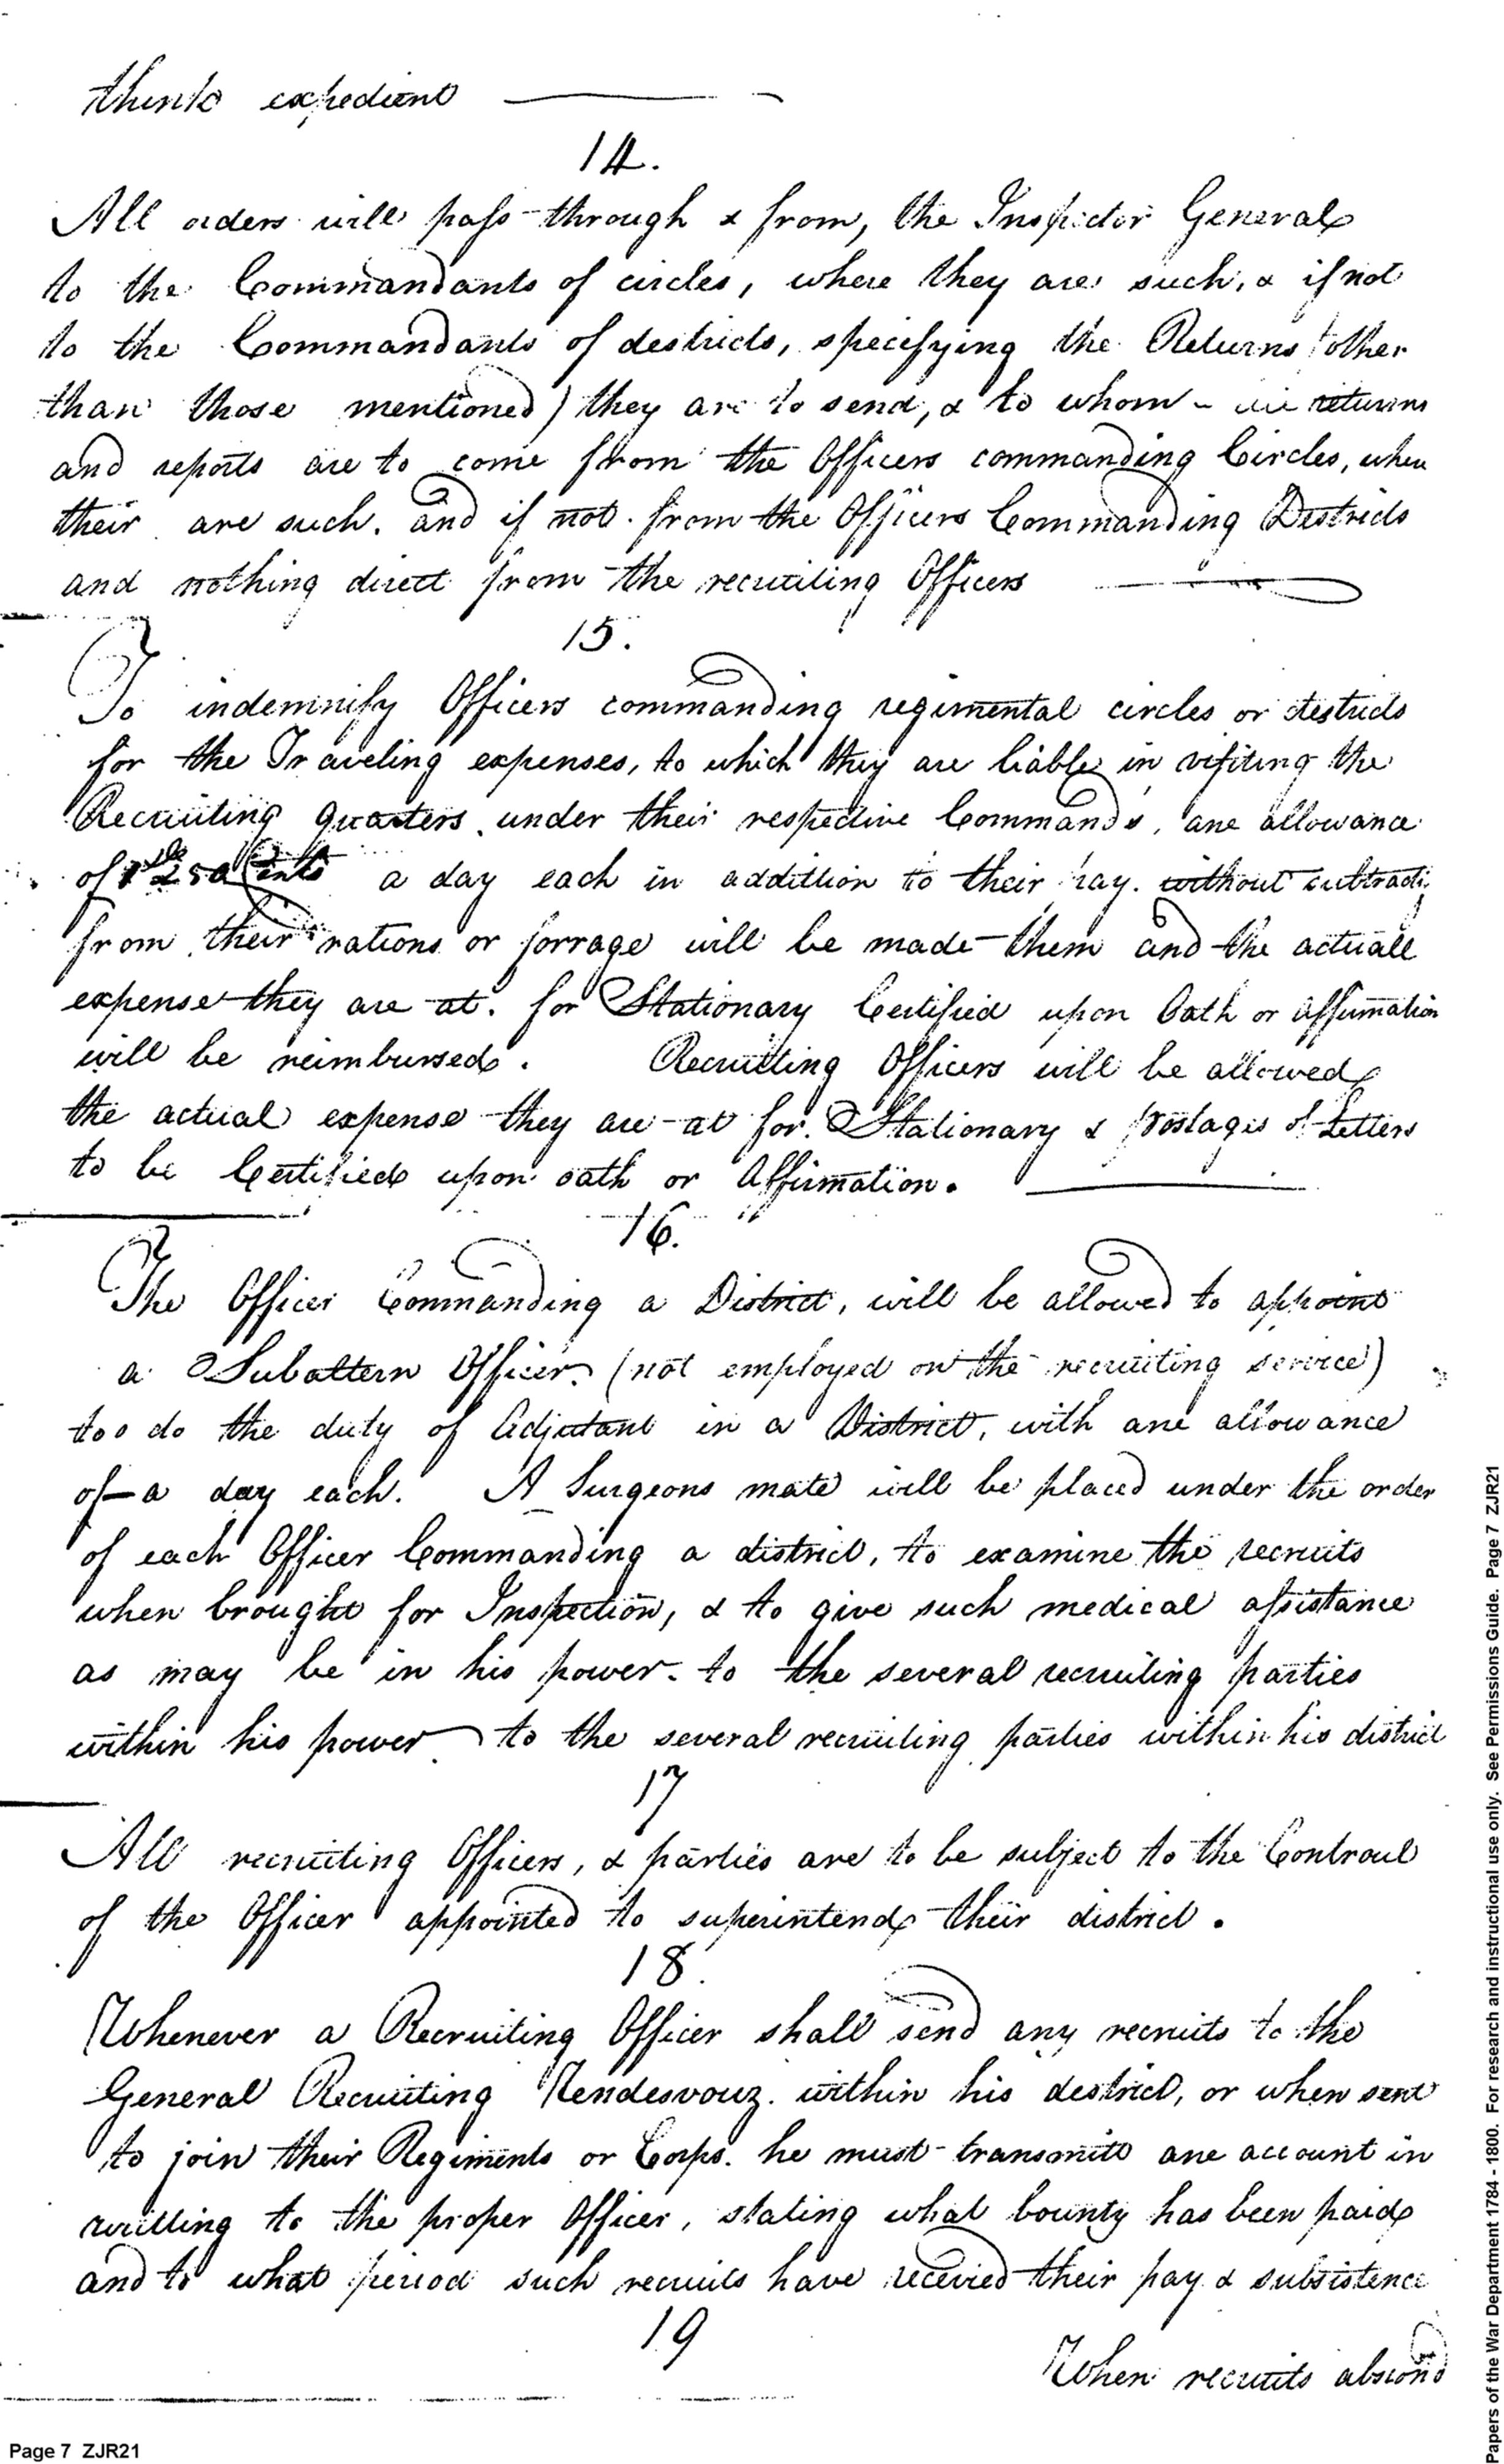 think expedient
14.
All orders will pass through & from, the Inspector General
to the Commandants of circles, where they are such, & if not
to the Commandants of destricts, specifying the Returns (other
than those mentioned) they are to send, & to whom - returns
and reports are to come from the Officers commanding Circles, when
their are such. and if not. from the Officers Commanding Destricts
and nothing direct from the recruiting Officers
15.
To indemnify Officers commanding regimental circles or destricts
for the Traveling expenses, to which they are liable in visiting the
Recruiting quarters under their respective Commands, ane allowance
of Cents a day each in addittion to their pay. without subtracti
from their rations or forrage will be made them and the actuall
expense they are at. for Stationary Certified upon Oath or affirmation
will be reimbursed. Recruiting Officers will be allowed
the actual expense they are at for. Stationary & postages of Letters
to be Certified upon oath or Affirmation.
16.
The Officer Commanding a District, will be allowed to appoint
a Subaltern Officer (not employed on the recruiting service)
too do the duty of Adjutant in a District, with ane allowance
of — a day each. A Surgeons mate will be placed under the order
of each Officer Commanding a district, to examine the recruits
when brought for Inspection, & to give such medical assistance
as may be in his power - to the several recruiting parties
within his power to the several recruiting parties within his district
17
All recruiting Officers, & parties are to be subject to the Controul
of the Officer appointed to superintend their district.
18.
Whenever a Recruiting Officer shall send any recruits to the
General Recruiting Rendesvouz. within his destrict, or when sent
to join their Regiments or Corps. he must transmitt ane account in
writting to the proper Officer, stating what bounty has been paid
and to what period such recruits have received their pay & subsistence
19
When recruits abscond
Page 7 ZJR21
Papers of the War Department 1784 - 1800. For research and instructional use only. See Permissions Guide. Page 7 ZJR21